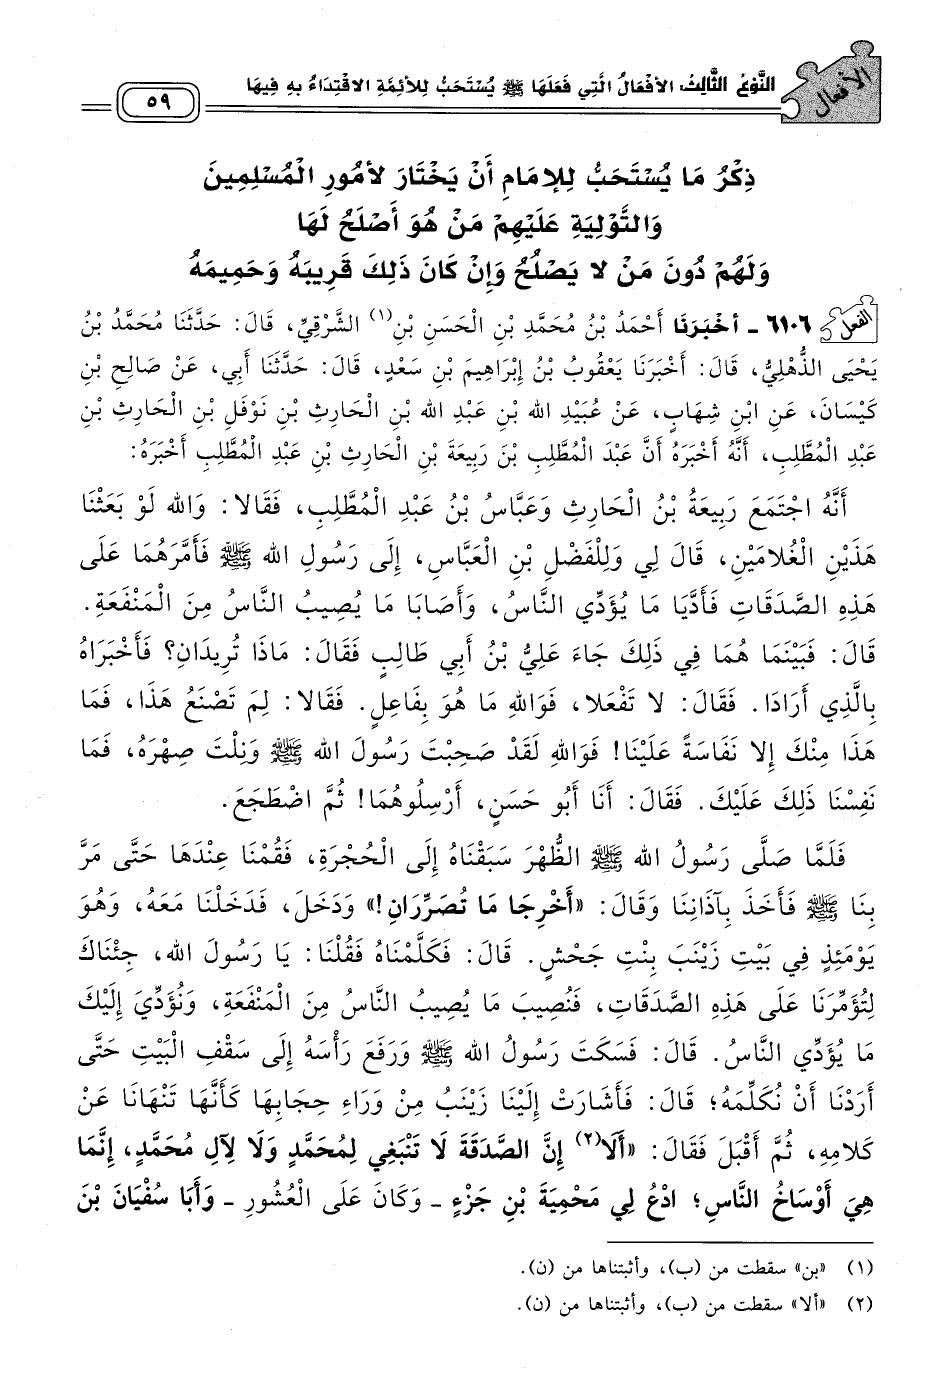 الأفعال
النَّوْعُ الثَّالِثُ الأَفْعَالُ الَّتِي فَعَلَهَا ﷺ يُسْتَحَبُّ لِلأَئِمَّةِ الاقْتِدَاءُ بِهِ فِيهَا
٥٩
ذِكْرُ مَا يُسْتَحَبُّ لِلإمَامِ أَنْ يَخْتَارَ لأمُورِ الْمُسْلِمِينَ
وَالتَّوْلِيَةِ عَلَيْهِمْ مَنْ هُوَ أَصْلَحُ لَهَا
وَلَهُمْ دُونَ مَنْ لا يَصْلُحُ وَإنْ كَانَ ذَلِكَ قَرِيبَهُ وَحَمِيمَهُ
الفعل ٦١٠٦ - أخْبَرَنَا أَحْمَدُ بْنُ مُحَمَّدِ بْنِ الْحَسَنِ بْنِ(١) الشَّرْقِيِّ، قَالَ: حَدَّثَنَا مُحَمَّدُ بْنُ
يَحْيَى الذُّهْلِيُّ، قَالَ: أَخْبَرَنَا يَعْقُوبُ بْنُ إِبْرَاهِيمَ بْنِ سَعْدٍ، قَالَ: حَدَّثَنَا أَبِي، عَنْ صَالِحِ بْنِ
كَيْسَانَ، عَنِ ابْنِ شِهَابٍ، عَنْ عُبَيْدِ الله بْنِ عَبْدِ الله بْنِ الْحَارِثِ بْنِ نَوْفَلِ بْنِ الْحَارِثِ بْنِ
عَبْدِ الْمُطَّلِبِ، أَنَّهُ أَخْبَرَهُ أَنَّ عَبْدَ الْمُطَّلِبِ بْنَ رَبِيعَةَ بْنِ الْحَارِثِ بْنِ عَبْدِ الْمُطَّلِبِ أَخْبَرَهُ:
أَنَّهُ اجْتَمَعَ رَبِيعَةُ بْنُ الْحَارِثِ وَعَبَّاسُ بْنُ عَبْدِ الْمُطَّلِبِ، فَقَالا: وَالله لَوْ بَعَثْنَا
هَذَيْنِ الْغُلامَيْنِ، قَالَ لِي وَلِلْفَضْلِ بْنِ الْعَبَّاسِ، إِلَى رَسُولِ الله ﷺ فَأَمَّرَهُمَا عَلَى
هَذِهِ الصَّدَقَاتِ فَأَدَّيَا مَا يُؤَدِّي النَّاسُ، وَأَصَابَا مَا يُصِيبُ النَّاسُ مِنَ الْمَنْفَعَةِ.
قَالَ: فَبَيْنَمَا هُمَا فِي ذَلِكَ جَاءَ عَلِيُّ بْنُ أَبِي طَالِبٍ فَقَالَ: مَاذَا تُرِيدَانِ؟ فَأَخْبَرَاهُ
بِالَّذِي أَرَادَا. فَقَالَ: لا تَفْعَلا، فَوَاللهِ مَا هُوَ بِفَاعِلٍ. فَقَالا: لِمَ تَصْنَعُ هَذَا، فَمَا
هَذَا مِنْكَ إِلا نَفَاسَةً عَلَيْنَا! فَوَاللهِ لَقَدْ صَحِبْتَ رَسُولَ الله ﷺ وَنِلْتَ صِهْرَهُ، فَمَا
نَفِسْنَا ذَلِكَ عَلَيْكَ. فَقَالَ: أَنَا أَبُو حَسَنٍ، أَرْسِلُوهُمَا! ثُمَّ اضْطَجَعَ.
فَلَمَّا صَلَّى رَسُولُ الله ﷺ الظُّهْرَ سَبَقْنَاهُ إِلَى الْحُجْرَةِ، فَقُمْنَا عِنْدَهَا حَتَّى مَرَّ
بِنَا ﷺ فَأَخَذَ بِآذَانِنَا وَقَالَ: «أَخْرِجَا مَا تُصَرِّرَانِ!» وَدَخَلَ، فَدَخَلْنَا مَعَهُ، وَهُوَ
يَوْمَئِذٍ فِي بَيْتِ زَيْنَبَ بِنْتِ جَحْشٍ. قَالَ: فَكَلَّمْنَاهُ فَقُلْنَا: يَا رَسُولَ الله، جِئْنَاكَ
لِتُؤَمِّرَنَا عَلَى هَذِهِ الصَّدَقَاتِ، فَنُصِيبَ مَا يُصِيبُ النَّاسُ مِنَ الْمَنْفَعَةِ، وَنُؤَدِّيَ إِلَيْكَ
مَا يُؤَدِّي النَّاسُ. قَالَ: فَسَكَتَ رَسُولُ الله ﷺ وَرَفَعَ رَأْسَهُ إِلَى سَقْفِ الْبَيْتِ حَتَّى
أَرَدْنَا أَنْ نُكَلِّمَهُ؛ قَالَ: فَأَشَارَتْ إِلَيْنَا زَيْنَبُ مِنْ وَرَاءِ حِجابِهَا كَأَنَّهَا تَنْهَانَا عَنْ
كَلامِهِ، ثُمَّ أَقْبَلَ فَقَالَ: «أَلَا(٢) إِنَّ الصَّدَقَةَ لَا تَنْبَغِي لِمُحَمَّدٍ وَلَا لِآلِ مُحَمَّدٍ، إِنَّمَا
هِيَ أَوْسَاخُ النَّاسِ؛ ادْعُ لِي مَحْمِيَةَ بْنَ جَزْءٍ - وَكَانَ عَلَى الْعُشُورِ - وَأَبَا سُفْيَانَ بْنَ
(١) «بن» سقطت من (ب)، وأثبتناها من (ن).
(٢) «ألا» سقطت من (ب)، وأثبتناها من (ن).